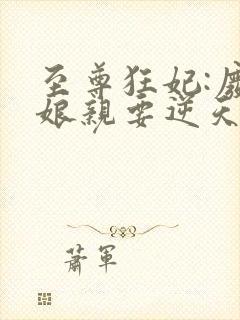 至尊狂妃:
娘親要逆天
蕭軍